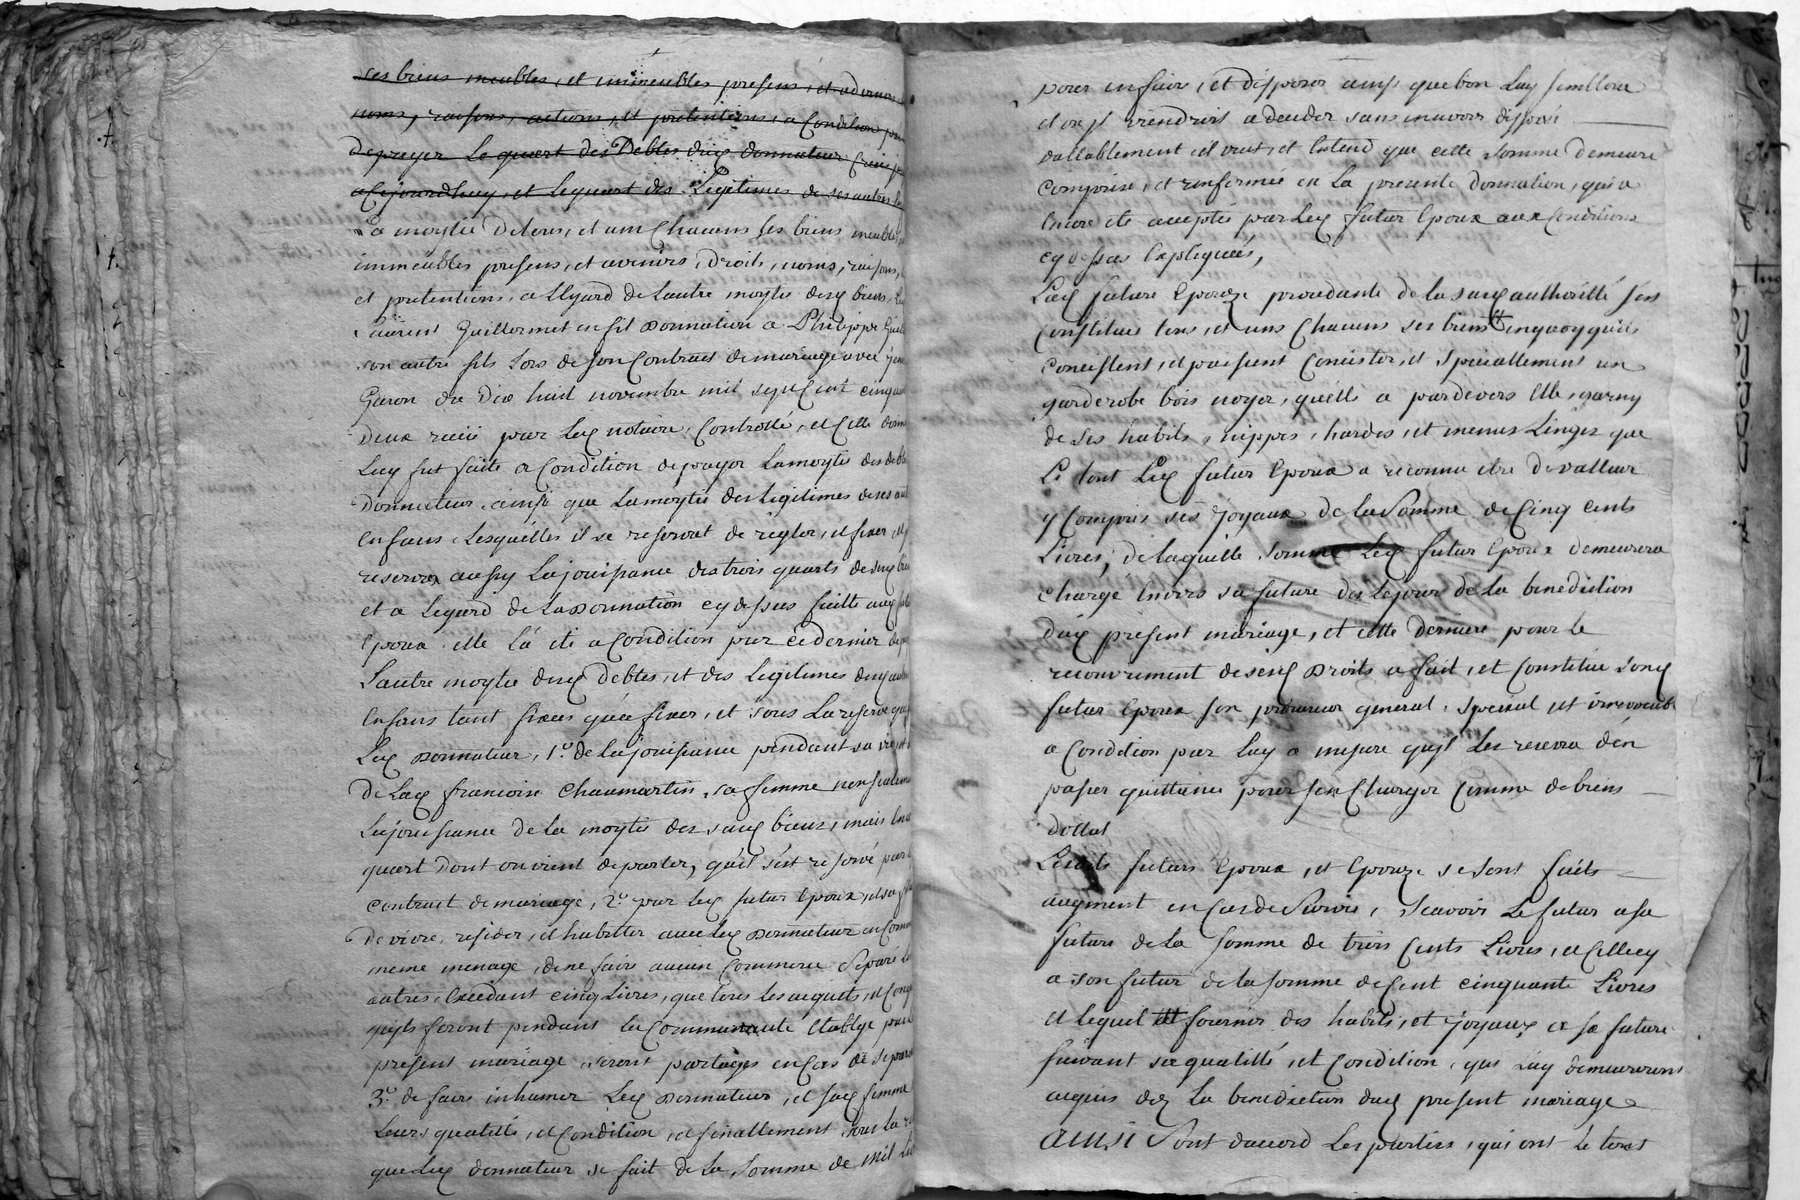 ses biens meubles, et immeubles presens, et advenirs
noms, raisons, actions, et pretentions, a Condition
de payer Le quart des Debtes dud donnateur
a Cejourdhuy, et Lequart des Legitimes de ses autres
La moytié de tous, et uns Chacuns ses biens meubles,
immeubles presens, et avenirs, Droits, noms, raisons,
et pretentions, a Legard de Lautre moytié desd biens, Led
Laurent Guillermet en fit Donnation a Philippe
son autre fils Lors de son Contract de mariage avec
Garon du Dix huit novembre mil sept Cent cinquante
Deux reçû par Led notaire, Controllé, et Cette
Luy fut faite a Condition de payer Lamoytié des
Donnateur, ainsi que Lamoytié des Legitimes de ses
Enfans, Lesquelles il se reservat de règler, et fixer
reserva aussy La jouissance des trois quarts de sesd
et a Legard de La Donnation cy dessus faitte aud
Epoux, elle La été a Condition par ce dernier de
Lautre moytié desd Debtes, et des Legitimes desd
Enfans tant fixés qu'a fixer, et sous La reserve que
Led Donnateur, 1.º de La jouissance pendant sa vie
De Lad francoise Chaumartin, sa femme non seulement
La jouissance de La moytié de sesd biens, mais
quart Dont on vient de parler, qu'il s'est reservé par
contract de mariage, 2.º par Led futur Epoux,
De vivre, resider, et habitter avec Led Donnateur en
meme menage, de ne faire aucun Commerce Separé
autres, Excedant cinq Livres, que tous Les acquets, et
qu'ils feront pendant La Communauté Etablye par
present mariage, seront partagés en Cas de
3.º de faire inhumer Led Donnateur, et sad femme
Leurs qualité, et Condition, et finallement sous La
que Led donnateur se fait de La Somme de Mil
pour en faire, et disposer ainsy que bon Luy semblera
et ou jl viendroit a deceder sans en avoir disposé
vallablement il veut, et Entend que cette somme demeure
Comprise, et renfermée en La presente Donnation, qui a
Encore été acceptée par Led futur Epoux aux Conditions
cy dessus Expliquées,
Lad future Epouze procedante de La susd authorité s'est
Constituée tous, et uns Chacuns ses biens en quoy qu'ils
Consistent, et puissent Consister, et Speciallement un
garderobe bois noyer, qu'elle a pardevers Elle, garny
de Ses habits, nippes, hardes, et menus Linges que
Le tout Led futur Epoux a reconnu etre De valleur
y Compris ses Joyaux de La Somme de Cinq cents
Livres, de laquelle Somme Led futur Epoux demeurera
chargé Envers sa future des Le jour de La benediction
dud present mariage, et cette derniere pour le
recouvrement de sesd Droits a fait, et Constitué sond
futur Epoux son procureur general, Special et irrevocable
a Condition par Luy a mesure qu'jl Les recevra d'en
passer quittance pour s'en Charger Comme de biens
dottal
Lesdits futurs Epoux, et Epouze se sont faits
augment en Cas de Survie, Scavoir Le futur a sa
future de La Somme de trois Cents Livres, et Cellecy
a son futur de La Somme de Cent cinquante Livres
et Lequel fournir des habits, et Joyaux a sa future
suivant sa qualitté, et Condition, qui Luy demeureront
acquis dez La benediction dud present mariage
AINSI Sont daccord Les parties, qui ont le tout